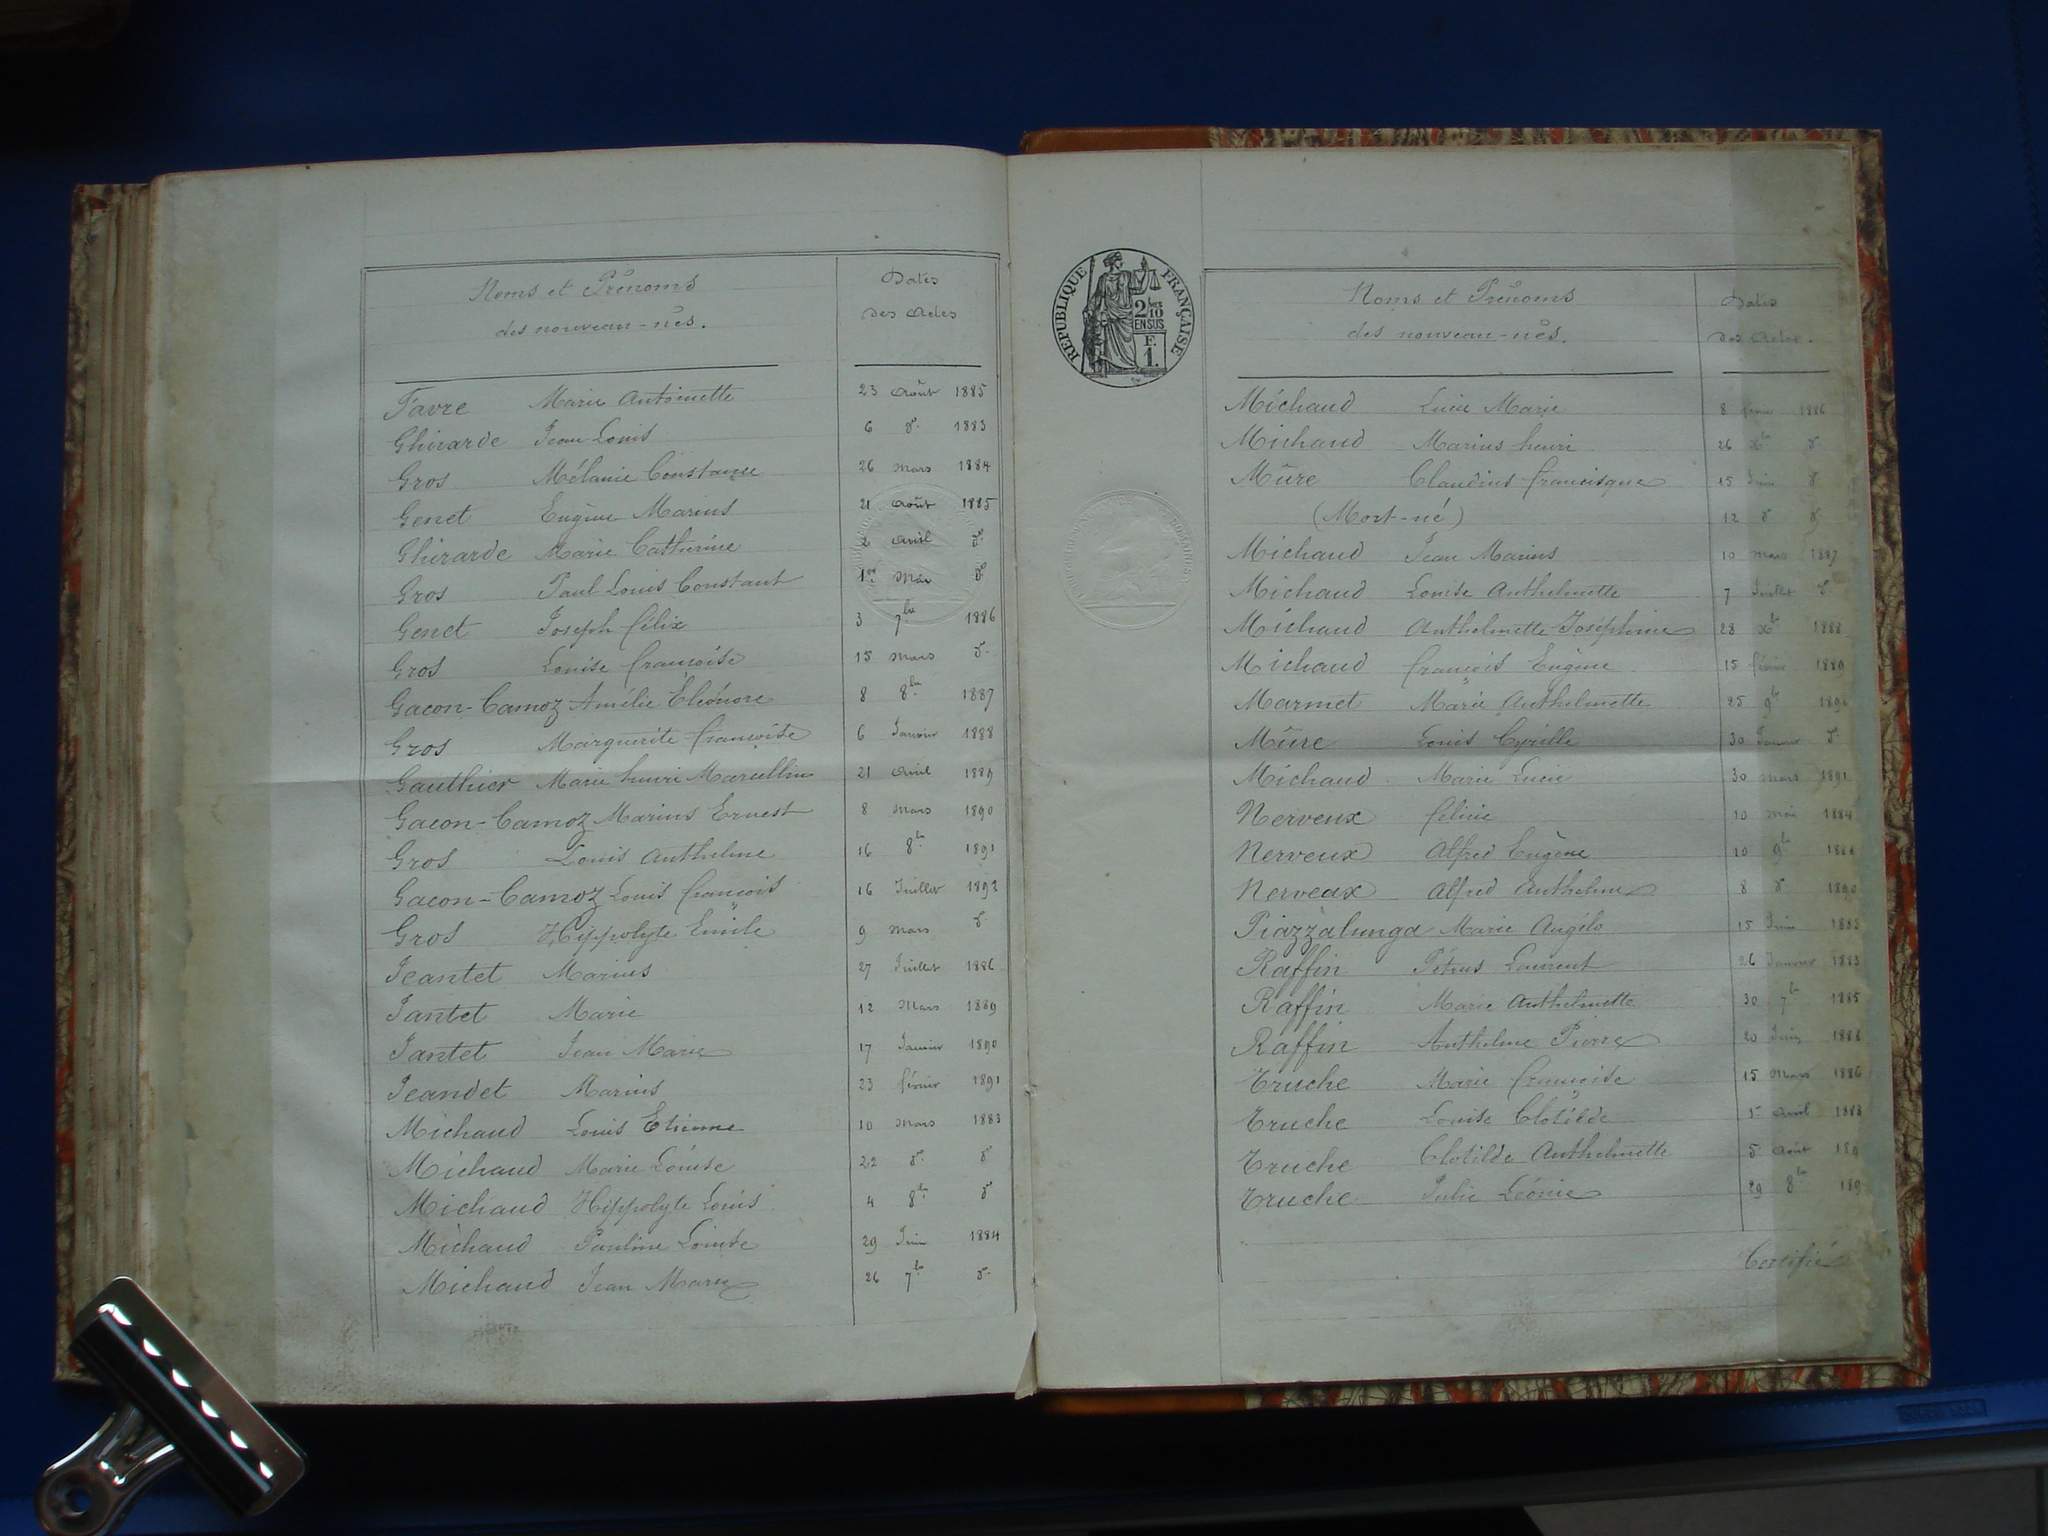 Noms et Prénoms
des nouveau-nés.
Dates
des Actes
Favre Marie Antoinette 23 Août 1885
Ghirarde Jean Louis 6 do 1883
Gros Mélanie Constance 26 Mars 1884
Genet Eugène Marius 21 Août 1885
Ghirarde Marie Catherine 2 Avril do
Gros Paul Louis Constant 1er Mai do
Genet Joseph félix 3 7bre 1886
Gros Louise françoise 15 Mars do
Gacon-Camoz Amélie Eléonore 8 8bre 1887
Gros Marguerite françoise 6 Janvier 1888
Gauthier Marie henri Marcellin 21 Avril 1889
Gacon-Camoz Marius Ernest 8 Mars 1890
Gros Louis Anthelme 16 8bre 1891
Gacon-Camoz Louis françois 16 Juillet 1892
Gros Hippolyte Emile 9 Mars do
Jeantet Marius 27 Juillet 1886
Jantet Marie 12 Mars 1889
Jantet Jean Marie 17 Janvier 1890
Jeandet Marius 23 février 1891
Michaud Louis Etienne 10 Mars 1883
Michaud Marie Louise 22 do do
Michaud Hippolyte Louis 4 8bre do
Michaud Pauline Louise 29 Juin 1884
Michaud Jean Marie 26 7bre do
REPUBLIQUE FRANÇAISE
2/10 EN SUS
F. 1.
Noms et Prénoms
des nouveau-nés.
Dates
des Actes.
Michaud Lucie Marie 8 1886
Michaud Marius henri 26 Xbre do
Mûre Claudius francisque 15 Juin do
(Mort-né) 12 do do
Michaud Jean Marius 10 Mars 1887
Michaud Louise Anthelmette 7 Juillet do
Michaud Anthelmette Joséphine 28 Xbre 1888
Michaud françois Eugène 15 février 1889
Marmet Marie Anthelmette 25 9bre
Mûre Louis Cyrille 30 Janvier do
Michaud Marie Lucie 30 Mars 1891
Nerveux Céline 10 Mai 1884
Nerveux Alfred Eugène 10 9bre
Nerveax Alfred Anthelme 8 do 1890
Piazzalunga Marie Angélo 15 Juin
Raffin Pétrus Laurent 26 Janvier 1883
Raffin Marie Anthelmette 30 7bre 1885
Raffin Anthelme Pierre 20 Juin 1888
Truche Marie françoise 15 Mars 1886
Truche Louise Clotilde Avril 1888
Truche Clotilde Anthelmette 5 Août 189
Truche Julie Léonie 29 8bre 189
Certifié